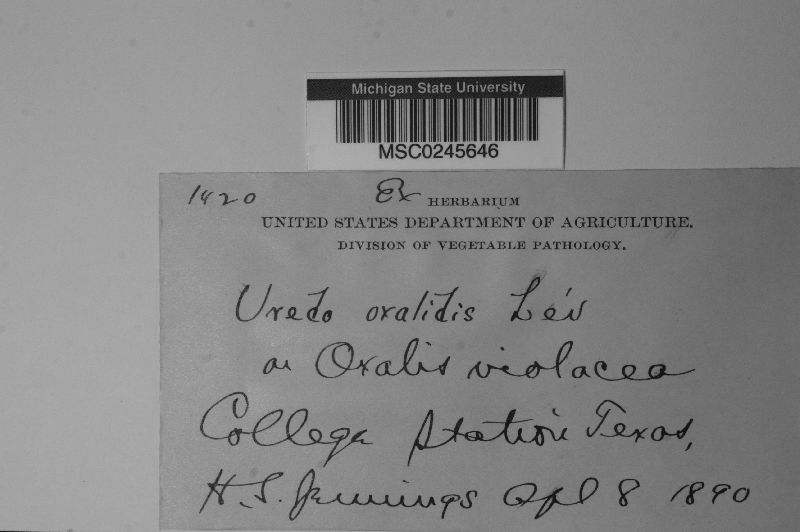 Michigan State University
MSC0245646
1420 Ex HERBARIUM
UNITED STATES DEPARTMENT OF AGRICULTURE.
DIVISION OF VEGETABLE PATHOLOGY.
Uredo oxalidis Lév
on Oxalis violacea
College Station Texas,
H. S. Jennings Apl 8 1890